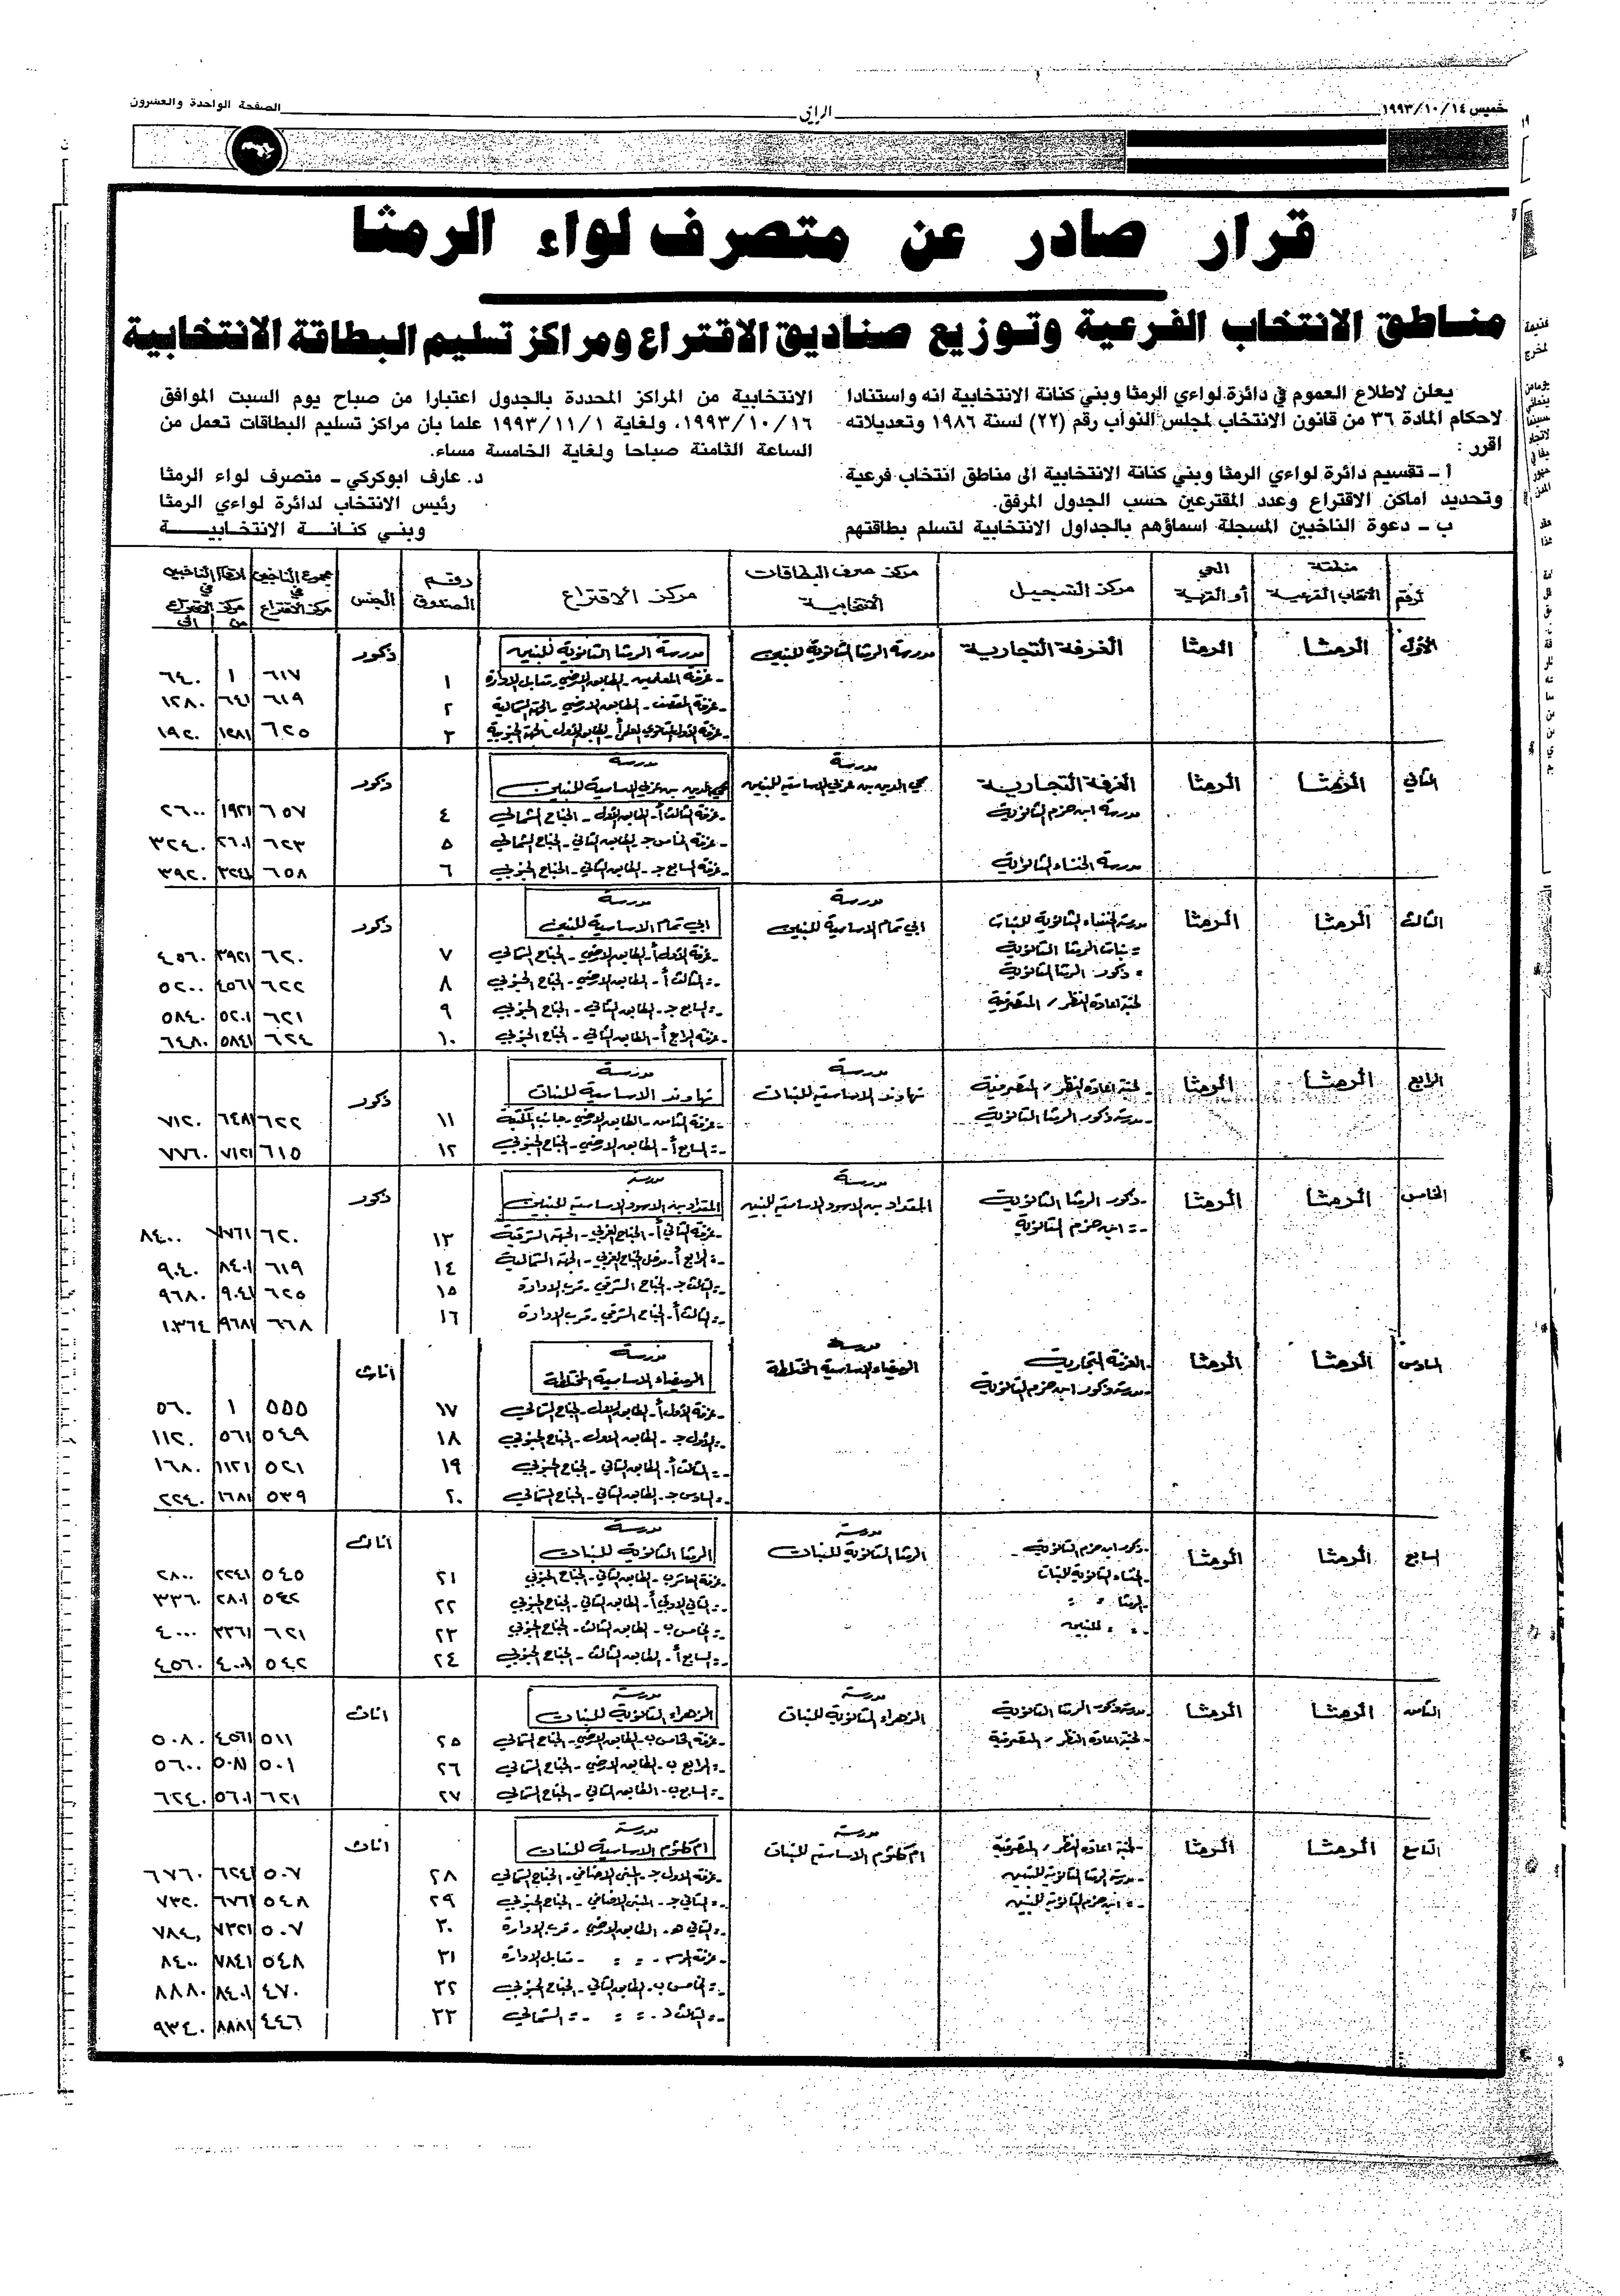 خميس ١٤/١٠/١٩٩٣
الرأي
الصفحة الواحدة والعشرون
قرار صادر عن متصرف لواء الرمثا
مناطق الانتخاب الفرعية وتوزيع صناديق الاقتراع ومراكز تسليم البطاقة الانتخابية
يعلن لاطلاع العموم في دائرة لواءي الرمثا وبني كنانة الانتخابية انه واستنادا
لاحكام المادة ٣٦ من قانون الانتخاب لمجلس النواب رقم (٢٢) لسنة ١٩٨٦ وتعديلاته
اقرر :
أ ـ تقسيم دائرة لواءي الرمثا وبني كنانة الانتخابية الى مناطق انتخاب فرعية
وتحديد اماكن الاقتراع وعدد المقترعين حسب الجدول المرفق.
ب ـ دعوة الناخبين المسجلة اسماؤهم بالجداول الانتخابية لتسلم بطاقتهم
الانتخابية من المراكز المحددة بالجدول اعتبارا من صباح يوم السبت الموافق
١٦/١٠/١٩٩٣، ولغاية ١/١١/١٩٩٣ علما بان مراكز تسليم البطاقات تعمل من
الساعة الثامنة صباحا ولغاية الخامسة مساء.
د. عارف ابوكركي ـ متصرف لواء الرمثا
رئيس الانتخاب لدائرة لواءي الرمثا
وبني كنانة الانتخابية
الرقم منطقة الانتخاب الفرعية الحي أو القرية مركز التسجيل مركز صرف البطاقات الانتخابية مركز الاقتراع رقم الصندوق الجنس مجموع الناخبين في مركز الاقتراع ارقام الناخبين في مركز الاقتراع من الى
الأول الرمثا الرمثا الغرفة التجارية مدرسة الرمثا الثانوية للبنين مدرسة الرمثا الثانوية للبنين ذكور
ـ غرفة المعلمين ـ الطابق الارضي ـ مقابل الادارة ١ ٦١٧ ١ ٦٤٠
ـ غرفة المقصف ـ الطابق الارضي ـ الجهة الشمالية ٢ ٦١٩ ٦٤١ ١٢٨٠
ـ غرفة الأول الثانوي العلمي أ ـ الطابق الأول ـ الجهة الجنوبية ٣ ٦٢٥ ١٢٨١ ١٩٢٠
الثاني الرمثا الرمثا الغرفة التجارية مدرسة محي الدين بن عربي الاساسية للبنين مدرسة محي الدين بن عربي الاساسية للبنين ذكور
مدرسة ابن حزم الثانوية ـ غرفة الثالث أ ـ الطابق الأول ـ الجناح الشمالي ٤ ٦٥٧ ١٩٢١ ٢٦٠٠
ـ غرفة الخامس جـ ـ الطابق الثاني ـ الجناح الشمالي ٥ ٦٢٣ ٢٦٠١ ٣٢٤٠
مدرسة الخنساء الثانوية ـ غرفة السابع جـ ـ الطابق الثاني ـ الجناح الجنوبي ٦ ٦٥٨ ٣٢٤١ ٣٩٢٠
الثالث الرمثا الرمثا مدرسة الخنساء الثانوية للبنات مدرسة ابي تمام الاساسية للبنين مدرسة ابي تمام الاساسية للبنين ذكور
= بنات الرمثا الثانوية ـ غرفة الأول أ ـ الطابق الارضي ـ الجناح الشمالي ٧ ٦٢٠ ٣٩٢١ ٤٥٦٠
= ذكور الرمثا الثانوية ـ = الثالث أ ـ الطابق الارضي ـ الجناح الجنوبي ٨ ٦٢٢ ٤٥٦١ ٥٢٠٠
لجنة اعادة النظر / المتصرفية ـ = السابع جـ ـ الطابق الثاني ـ الجناح الجنوبي ٩ ٦٢١ ٥٢٠١ ٥٨٤٠
ـ غرفة الرابع أ ـ الطابق الثاني ـ الجناح الجنوبي ١٠ ٦٢٤ ٥٨٤١ ٦٤٨٠
الرابع الرمثا الرمثا لجنة اعادة النظر / المتصرفية مدرسة نهاوند الاساسية للبنات مدرسة نهاوند الاساسية للبنات ذكور
ـ مدرسة ذكور الرمثا الثانوية ـ غرفة الثامن ـ الطابق الارضي ـ جانب المكتبة ١١ ٦٢٢ ٦٤٨١ ٧١٢٠
ـ = السابع أ ـ الطابق الارضي ـ الجناح الجنوبي ١٢ ٦١٥ ٧١٢١ ٧٧٦٠
الخامس الرمثا الرمثا ـ ذكور الرمثا الثانوية مدرسة المقداد بن الاسود الاساسية للبنين مدرسة المقداد بن الاسود الاساسية للبنين ذكور
ـ = ابن حزم الثانوية ـ غرفة الثاني أ ـ الجناح الغربي ـ الجهة الشرقية ١٣ ٦٢٠ ٧٧٦١ ٨٤٠٠
ـ = الرابع أ ـ مدخل الجناح الغربي ـ الجهة الشمالية ١٤ ٦١٩ ٨٤٠١ ٩٠٤٠
ـ = الثالث جـ ـ الجناح الشرقي ـ قرب الادارة ١٥ ٦٢٥ ٩٠٤١ ٩٦٨٠
ـ = الثالث أ ـ الجناح الشرقي ـ قرب الادارة ١٦ ٦٦٨ ٩٦٨١ ١٠٣٦٤
السادس الرمثا الرمثا ـ الغرفة التجارية مدرسة البيضاء الاساسية المختلطة مدرسة البيضاء الاساسية المختلطة اناث
ـ مدرسة ذكور ابن حزم الثانوية ـ غرفة الأول أ ـ الطابق الاول ـ الجناح الشمالي ١٧ ٥٥٥ ١ ٥٦٠
ـ = الأول جـ ـ الطابق الاول ـ الجناح الجنوبي ١٨ ٥٤٩ ٥٦١ ١١٢٠
ـ = الثالث أ ـ الطابق الثاني ـ الجناح الجنوبي ١٩ ٥٢١ ١١٢١ ١٦٨٠
ـ = السادس جـ ـ الطابق الثاني ـ الجناح الشمالي ٢٠ ٥٣٩ ١٦٨١ ٢٢٤٠
السابع الرمثا الرمثا ـ ذكور ابن حزم الثانوية مدرسة الرمثا الثانوية للبنات مدرسة الرمثا الثانوية للبنات اناث
ـ الخنساء الثانوية للبنات ـ غرفة العاشر ب ـ الطابق الثاني ـ الجناح الجنوبي ٢١ ٥٤٥ ٢٢٤١ ٢٨٠٠
ـ الرمثا = = ـ = الثاني الادبي أ ـ الطابق الثاني ـ الجناح الجنوبي ٢٢ ٥٤٢ ٢٨٠١ ٣٣٦٠
ـ = = للبنين ـ = الخامس ب ـ الطابق الثالث ـ الجناح الجنوبي ٢٣ ٦٢١ ٣٣٦١ ٤٠٠٠
ـ = السابع أ ـ الطابق الثالث ـ الجناح الجنوبي ٢٤ ٥٤٢ ٤٠٠١ ٤٥٦٠
الثامن الرمثا الرمثا ـ مدرسة ذكور الرمثا الثانوية مدرسة الزهراء الثانوية للبنات مدرسة الزهراء الثانوية للبنات اناث
ـ لجنة اعادة النظر / المتصرفية ـ غرفة الخامس ب ـ الطابق الارضي ـ الجناح الشمالي ٢٥ ٥١١ ٤٥٦١ ٥٠٨٠
ـ = الرابع ب ـ الطابق الارضي ـ الجناح الشمالي ٢٦ ٥٠١ ٥٠٨١ ٥٦٠٠
ـ = السابع ب ـ الطابق الثاني ـ الجناح الشمالي ٢٧ ٦٢١ ٥٦٠١ ٦٢٤٠
التاسع الرمثا الرمثا ـ لجنة اعادة النظر / المتصرفية مدرسة ام كلثوم الاساسية للبنات مدرسة ام كلثوم الاساسية للبنات اناث
ـ مدرسة الرمثا الثانوية للبنين ـ غرفة الاول جـ ـ المبنى الاضافي ـ الجناح الشمالي ٢٨ ٥٠٧ ٦٢٤١ ٦٧٦٠
ـ = ابن حزم الثانوية للبنين ـ = الثاني جـ ـ المبنى الاضافي ـ الجناح الجنوبي ٢٩ ٥٤٨ ٦٧٦١ ٧٣٢٠
ـ = الثاني هـ ـ الطابق الارضي ـ قرب الادارة ٣٠ ٥٠٧ ٧٣٢١ ٧٨٤٠
ـ غرفة الرسم ـ = = ـ مقابل الادارة ٣١ ٥٤٨ ٧٨٤١ ٨٤٠٠
ـ = الخامس ب ـ الطابق الثاني ـ الجناح الجنوبي ٣٢ ٤٧٠ ٨٤٠١ ٨٨٨٠
ـ = الثالث د ـ = = ـ = الشمالي ٣٣ ٤٤٦ ٨٨٨١ ٩٣٤٠